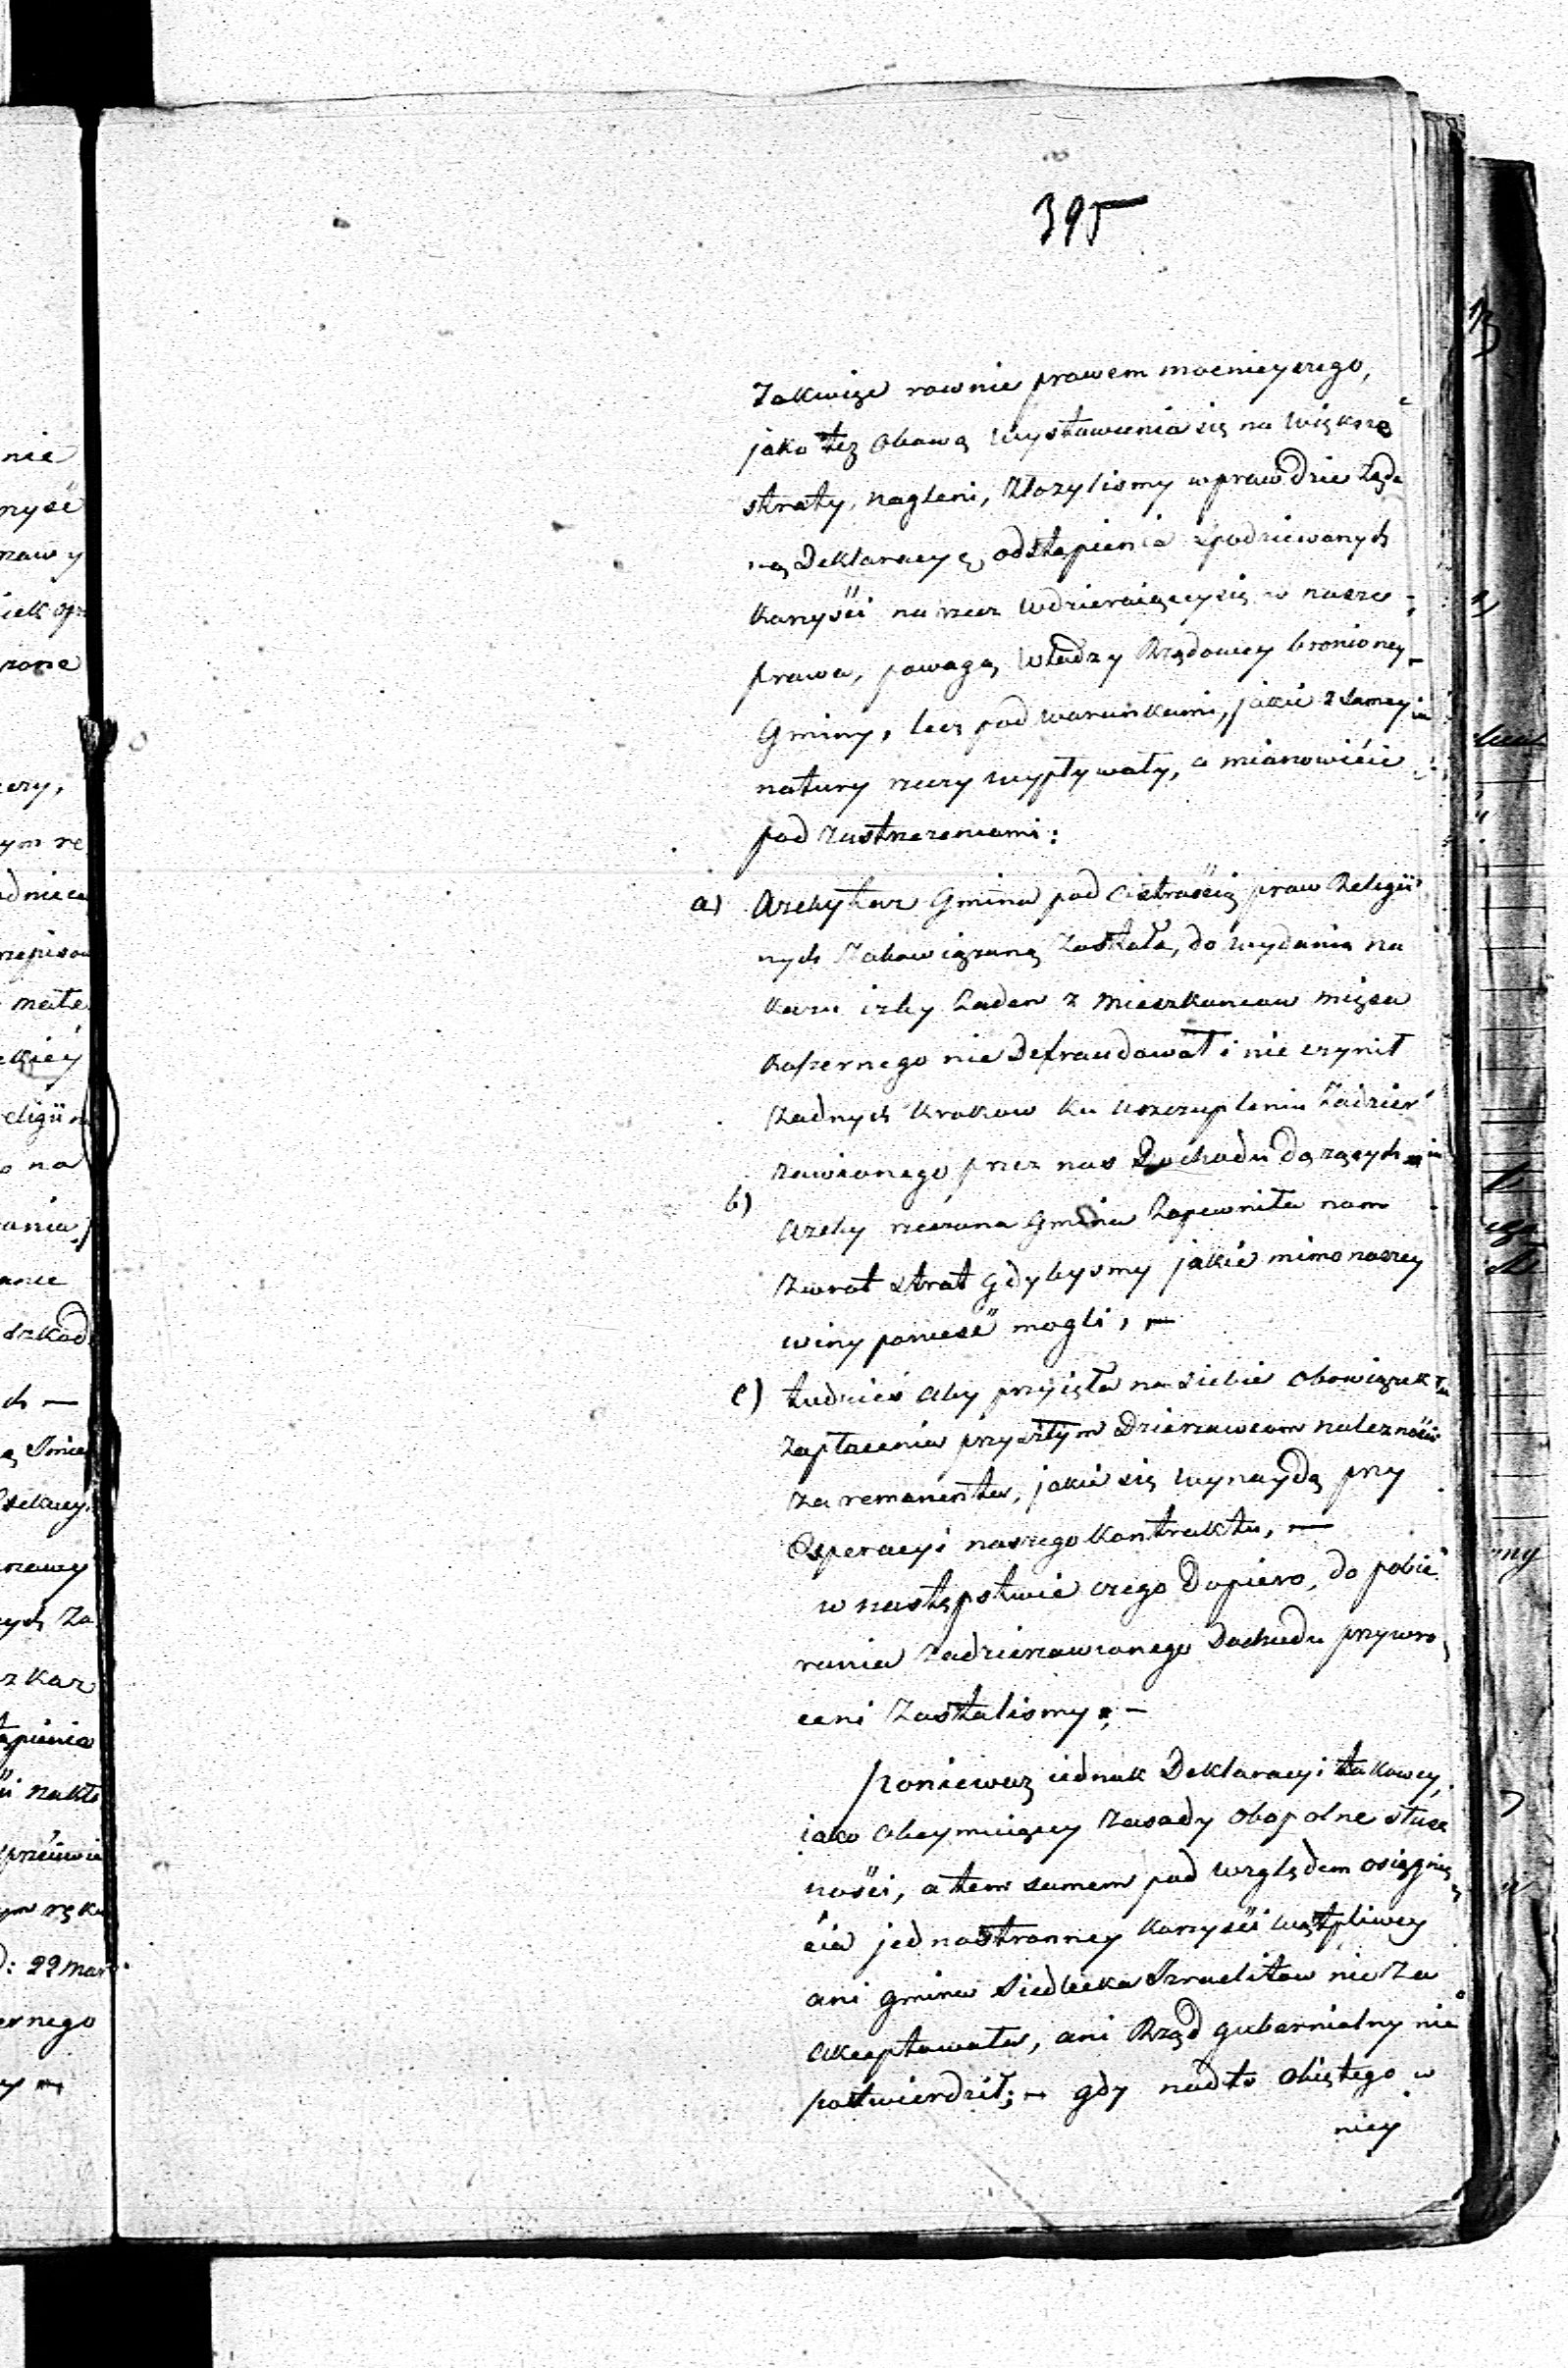 395
Takwięc rownie prawem mocnieyszego,
jako też obawą wystawienia się na większe
straty, nagleni, złozylismy wprawdzie żąda
ną Deklaracyę, odstąpienia spodziewanych
korzyści na rzecz wdzieraiącey się w nasze
prawa, powagą Władzy Rządowey bronioney
Gminy, lecz pod warunkami, jakie z samey
natury rzeczy wypływały, a mianowicie
pod zastrzezeniami:
a) azeby taz Gmina pod ścisłością praw Religii
nych zobowiązaną została, do wydania na
kazu izby żaden z mieszkancow mięsa
koszernego nie defraudował i nie czynił
żadnych krokow ku uszczupleniu zadzier
zawionego przez nas Dochodu dążących
b) azeby rzeczona Gmina zapewniła nam
zwrot strat gdybysmy jakie mimo naszey
winy ponieść mogli, —
c) tudzież aby przyięła na siebie obowiązek
zapłacenia przyszłym Dzierzawcom należności
za remanenta, jakie się wynaydą przy
Experacyi naszego kontraktu, —
w następstwie czego Dopiero, do pobie
rania zadzierzawionego Dochodu przywro
ceni zostalismy; —
Ponieważ iednak Deklaracyi takowey,
iako obeymuiącey zasady obopolne słusz
ności, a tem samem pod względem osiągnię
cia jednostronney korzyści wątpliwey
ani gmina Siedlecka Izraelitow nie za
akceptowała, ani Rząd gubernialny nie
potwierdził; — gdy nadto obiętego w
niey